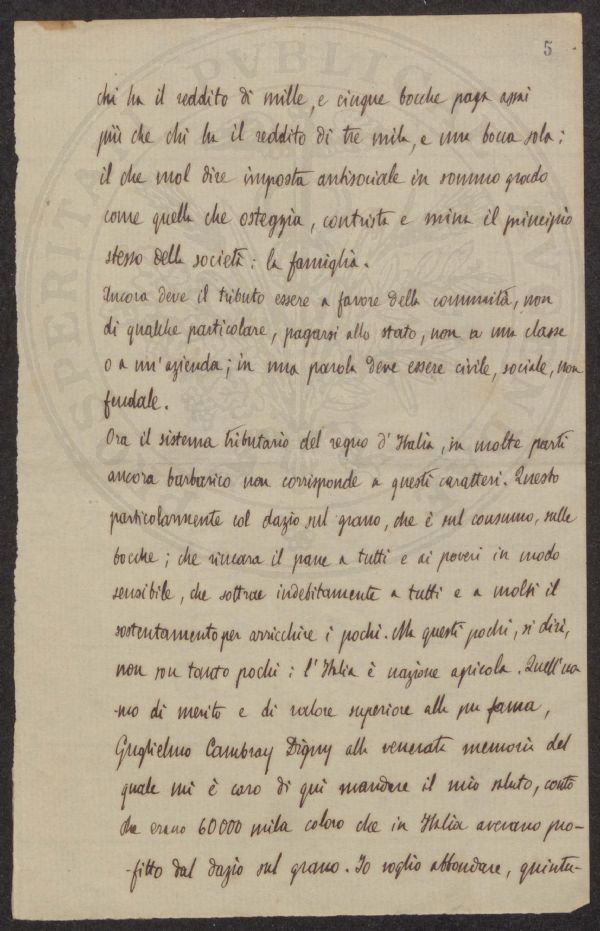 5
chi ha il reddito di mille, e cinque bocche paga assai
più che chi ha il reddito di tre mila, e una bocca sola:
il che vuol dire imposta antisociale in sommo grado
come quella che osteggia, contrista e mina il principio
stesso della società: la famiglia.
Ancora deve il tributo essere a favore della comunità, non
di qualche particolare, pagarsi allo stato, non a una classe
o a un'azienda; in una parola deve essere civile, sociale, non
feudale.
Ora il sistema tributario del regno d'Italia, in molte parti
ancora barbarico non corrisponde a questi caratteri. Questo
particolarmente col dazio sul grano, che è sul consumo, sulle
bocche; che rincara il pane a tutti e ai poveri in modo
sensibile, che sottrae indebitamente a tutti e a molti il
sostentamento per arricchire i pochi. Ma questi pochi, si dirà,
non son tanto pochi: l'Italia è nazione agricola. Quell'uo-
-mo di merito e di valore superiore alla pur fama,
Guglielmo Cambray Digny alla venerata memoria del
quale mi è caro di qui mandare il mio saluto, contò
che erano 60000 mila coloro che in Italia avevano pro-
-fitto dal dazio sul grano. Io voglio abbondare, quintu-
PVBLIC
SPERITA